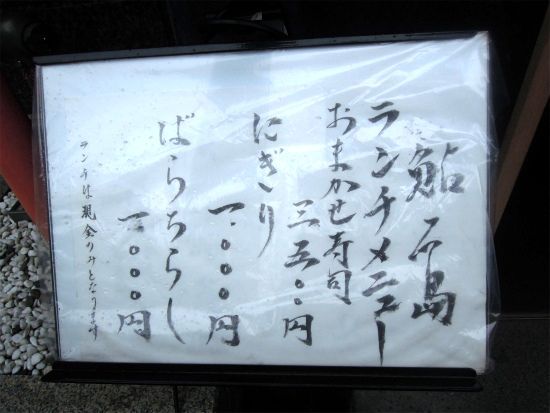 鮨 石島
ランチメニュー
おまかせ寿司
三五〇〇円
にぎり
一〇〇〇円
ばらちらし
一〇〇〇円
ランチは現金のみとなります